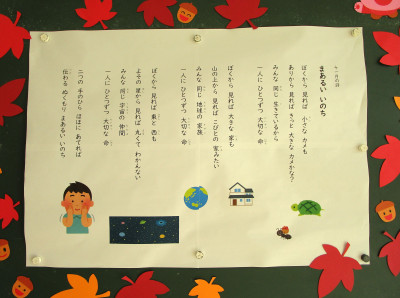 十一月の詩
まあるい いのち
ぼくから 見れば 小さな カメも
ありから 見れば きっと 大きな カメかな？
みんな 同じ 生きているから
一人に ひとつずつ 大切な 命
ぼくから 見れば 大きな 家も
山の上から 見れば こびとの 家みたい
みんな 同じ 地球の 家族
一人に ひとつずつ 大切な 命
ぼくから 見れば 東と 西も
よその星から 見れば 丸くて わかんない
みんな 同じ 宇宙の 仲間
一人に ひとつずつ 大切な 命
二つの 手のひら ほほに あてれば
伝わる ぬくもり まあるい いのち